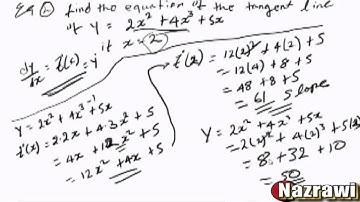 Eg ② find the equation of the tangent line
of y = 2x² + 4x³ + 5x
it x = 2
dy/dx = f'(x) = y'
y = 2x² + 4x³ + 5x
f'(x) = 2·2x + 4·3x² + 5
= 4x + 12x² + 5
= 12x² + 4x + 5
f'(x) = 12(2)² + 4(2) + 5
= 12(4) + 8 + 5
= 48 + 8 + 5
= 61 slope
y = 2x² + 4x³ + 5x
= 2(2)² + 4(2)³ + 5(2)
= 8 + 32 + 10
= 50
Nazrawi